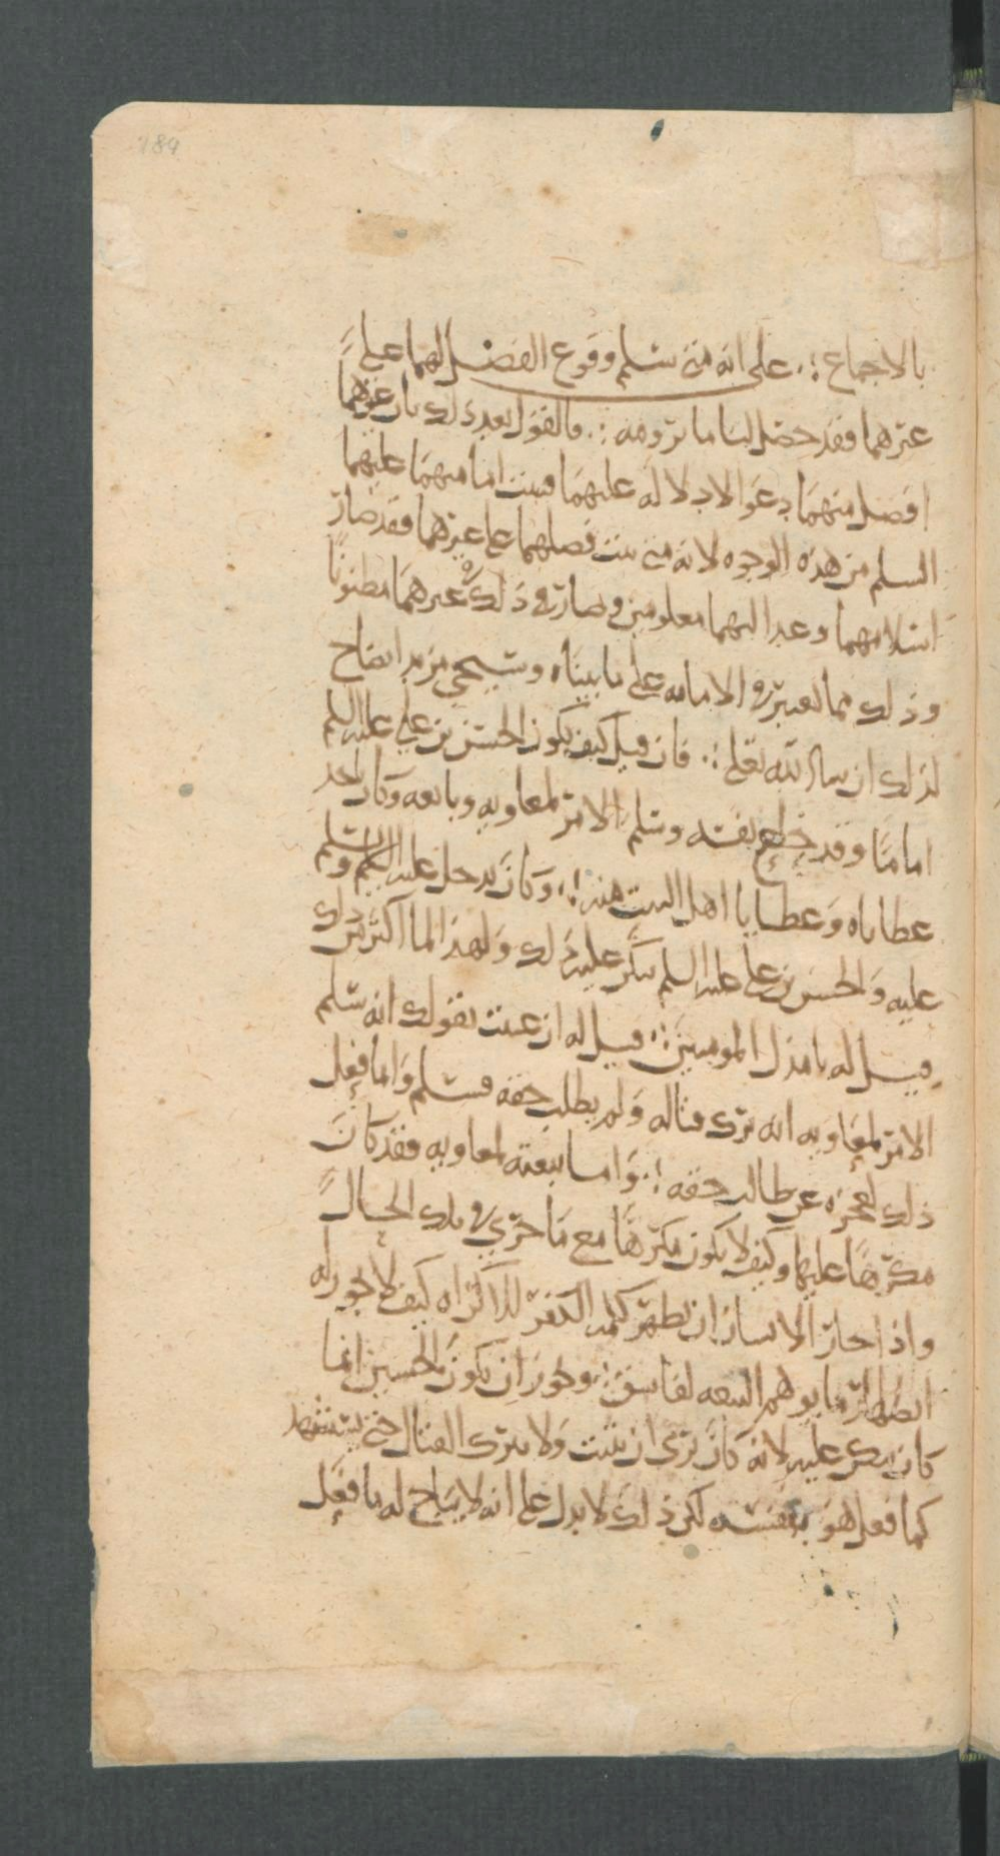 189
بالاجماع ؛ على انه متى سلم وقوع الفضل لهما على
غيرهما فقد حصل لنا ما نرومه ؛ فالقول بعد ذلك بان غيرهما
افضل منهما دعوا لا دلالة عليهما فثبت امامتهما عليهما
السلم من هذه الوجوه لانه متى ثبت فضلهما على غيرهما فقد صار
اسلامهما وعدالتهما معلومين وصار في ذلك غيرهما مظنونا
وذلك مما يعتبر في الامامه على ما بيناه وسيجي مزيد ايضاح
لذلك ان شا الله تعلى ؛ فان قيل كيف يكون الحسن بن علي عليه السلم
اماما وقد خلع نفسه وسلم الامر لمعاويه وبايعه وكان ياخذ
عطاياه وعطايا اهل البيت منه ؛ وكان يدخل عليه ويسلم
عليه والحسن بن علي عليه السلم ينكر عليه ذلك ولهذا لما اكثر من ذلك
قيل له يا مذل المومنين ؛ قيل له ان عنيت بقولك انه سلم
الامر لمعاويه انه ترك قتاله ولم يطلب حقه فمسلم وانما فعل
ذلك لعجزه عن طلب حقه ؛ واما بيعته لمعاويه فقد كان
مكرها عليها وكيف لا يكون مكرها مع ما جرى في تلك الحال
واذا جاز للانسان ان يظهر كلمة الكفر للاكراه كيف لا يجوز له
اظهار ما يوهم البيعه لفاسق ؛ ويجوز ان يكون الحسين انما
كان ينكر عليه لانه كان يرى ان يثبت ولا يترك القتال حتى يستشهد
كما فعل هو بنفسه لكن ذلك لا يدل على انه لا يباح له ما فعل